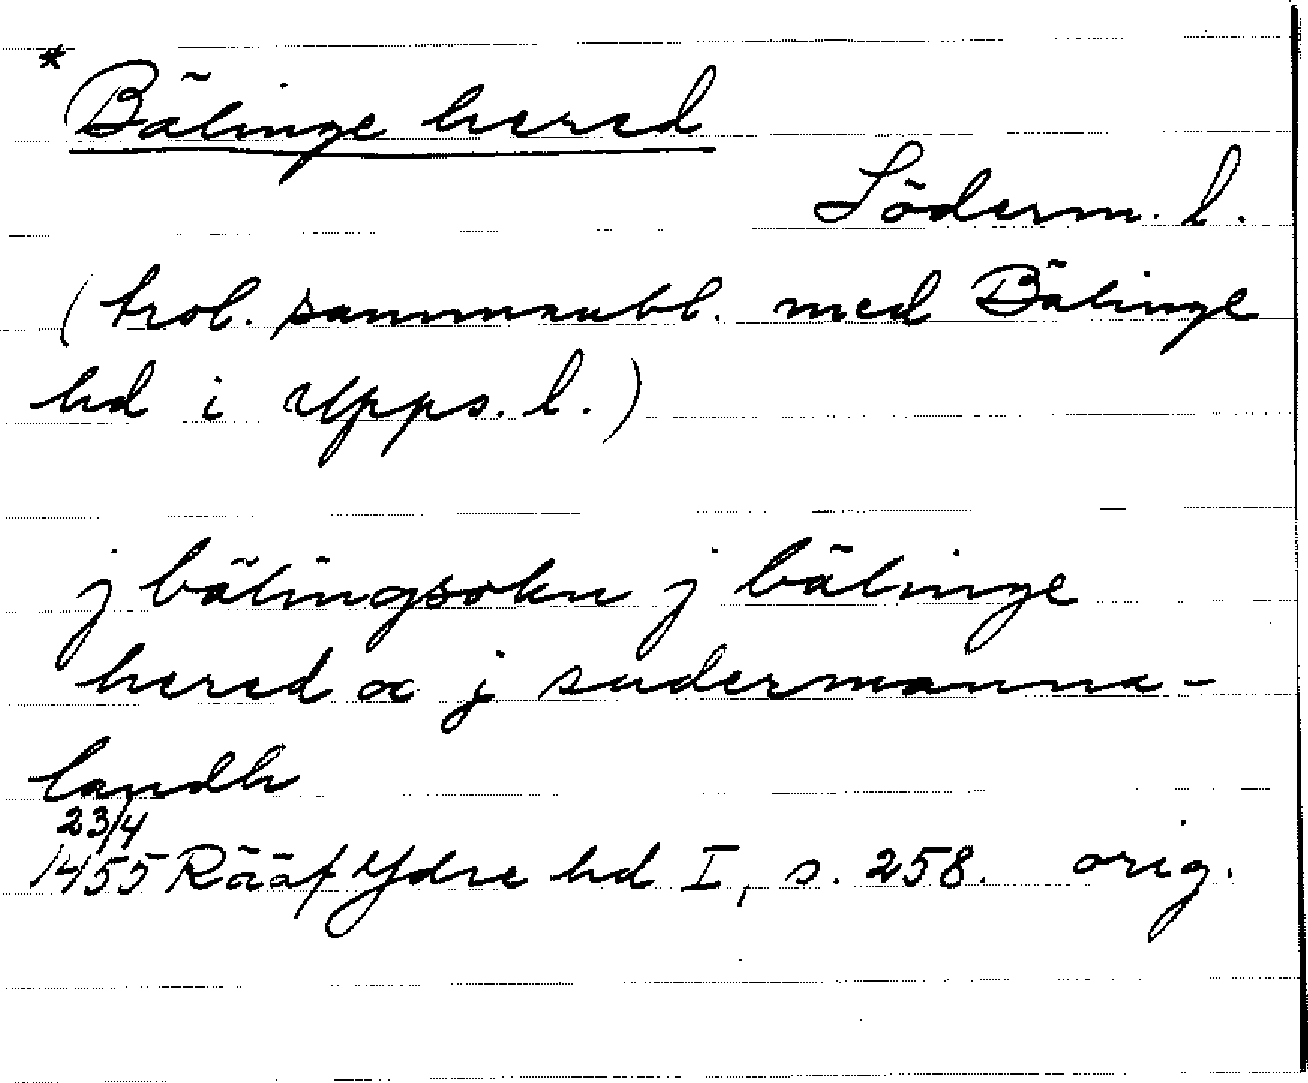 * Bälinge hered
Söderm. l.
(trol. sammanbl. med Bälinge
hd i Upps. l.)
j bälingsokn j bälinge
hered oc j sudermanna-
landh
23/4
1455 Rääf Ydre hd I, s. 258. orig.